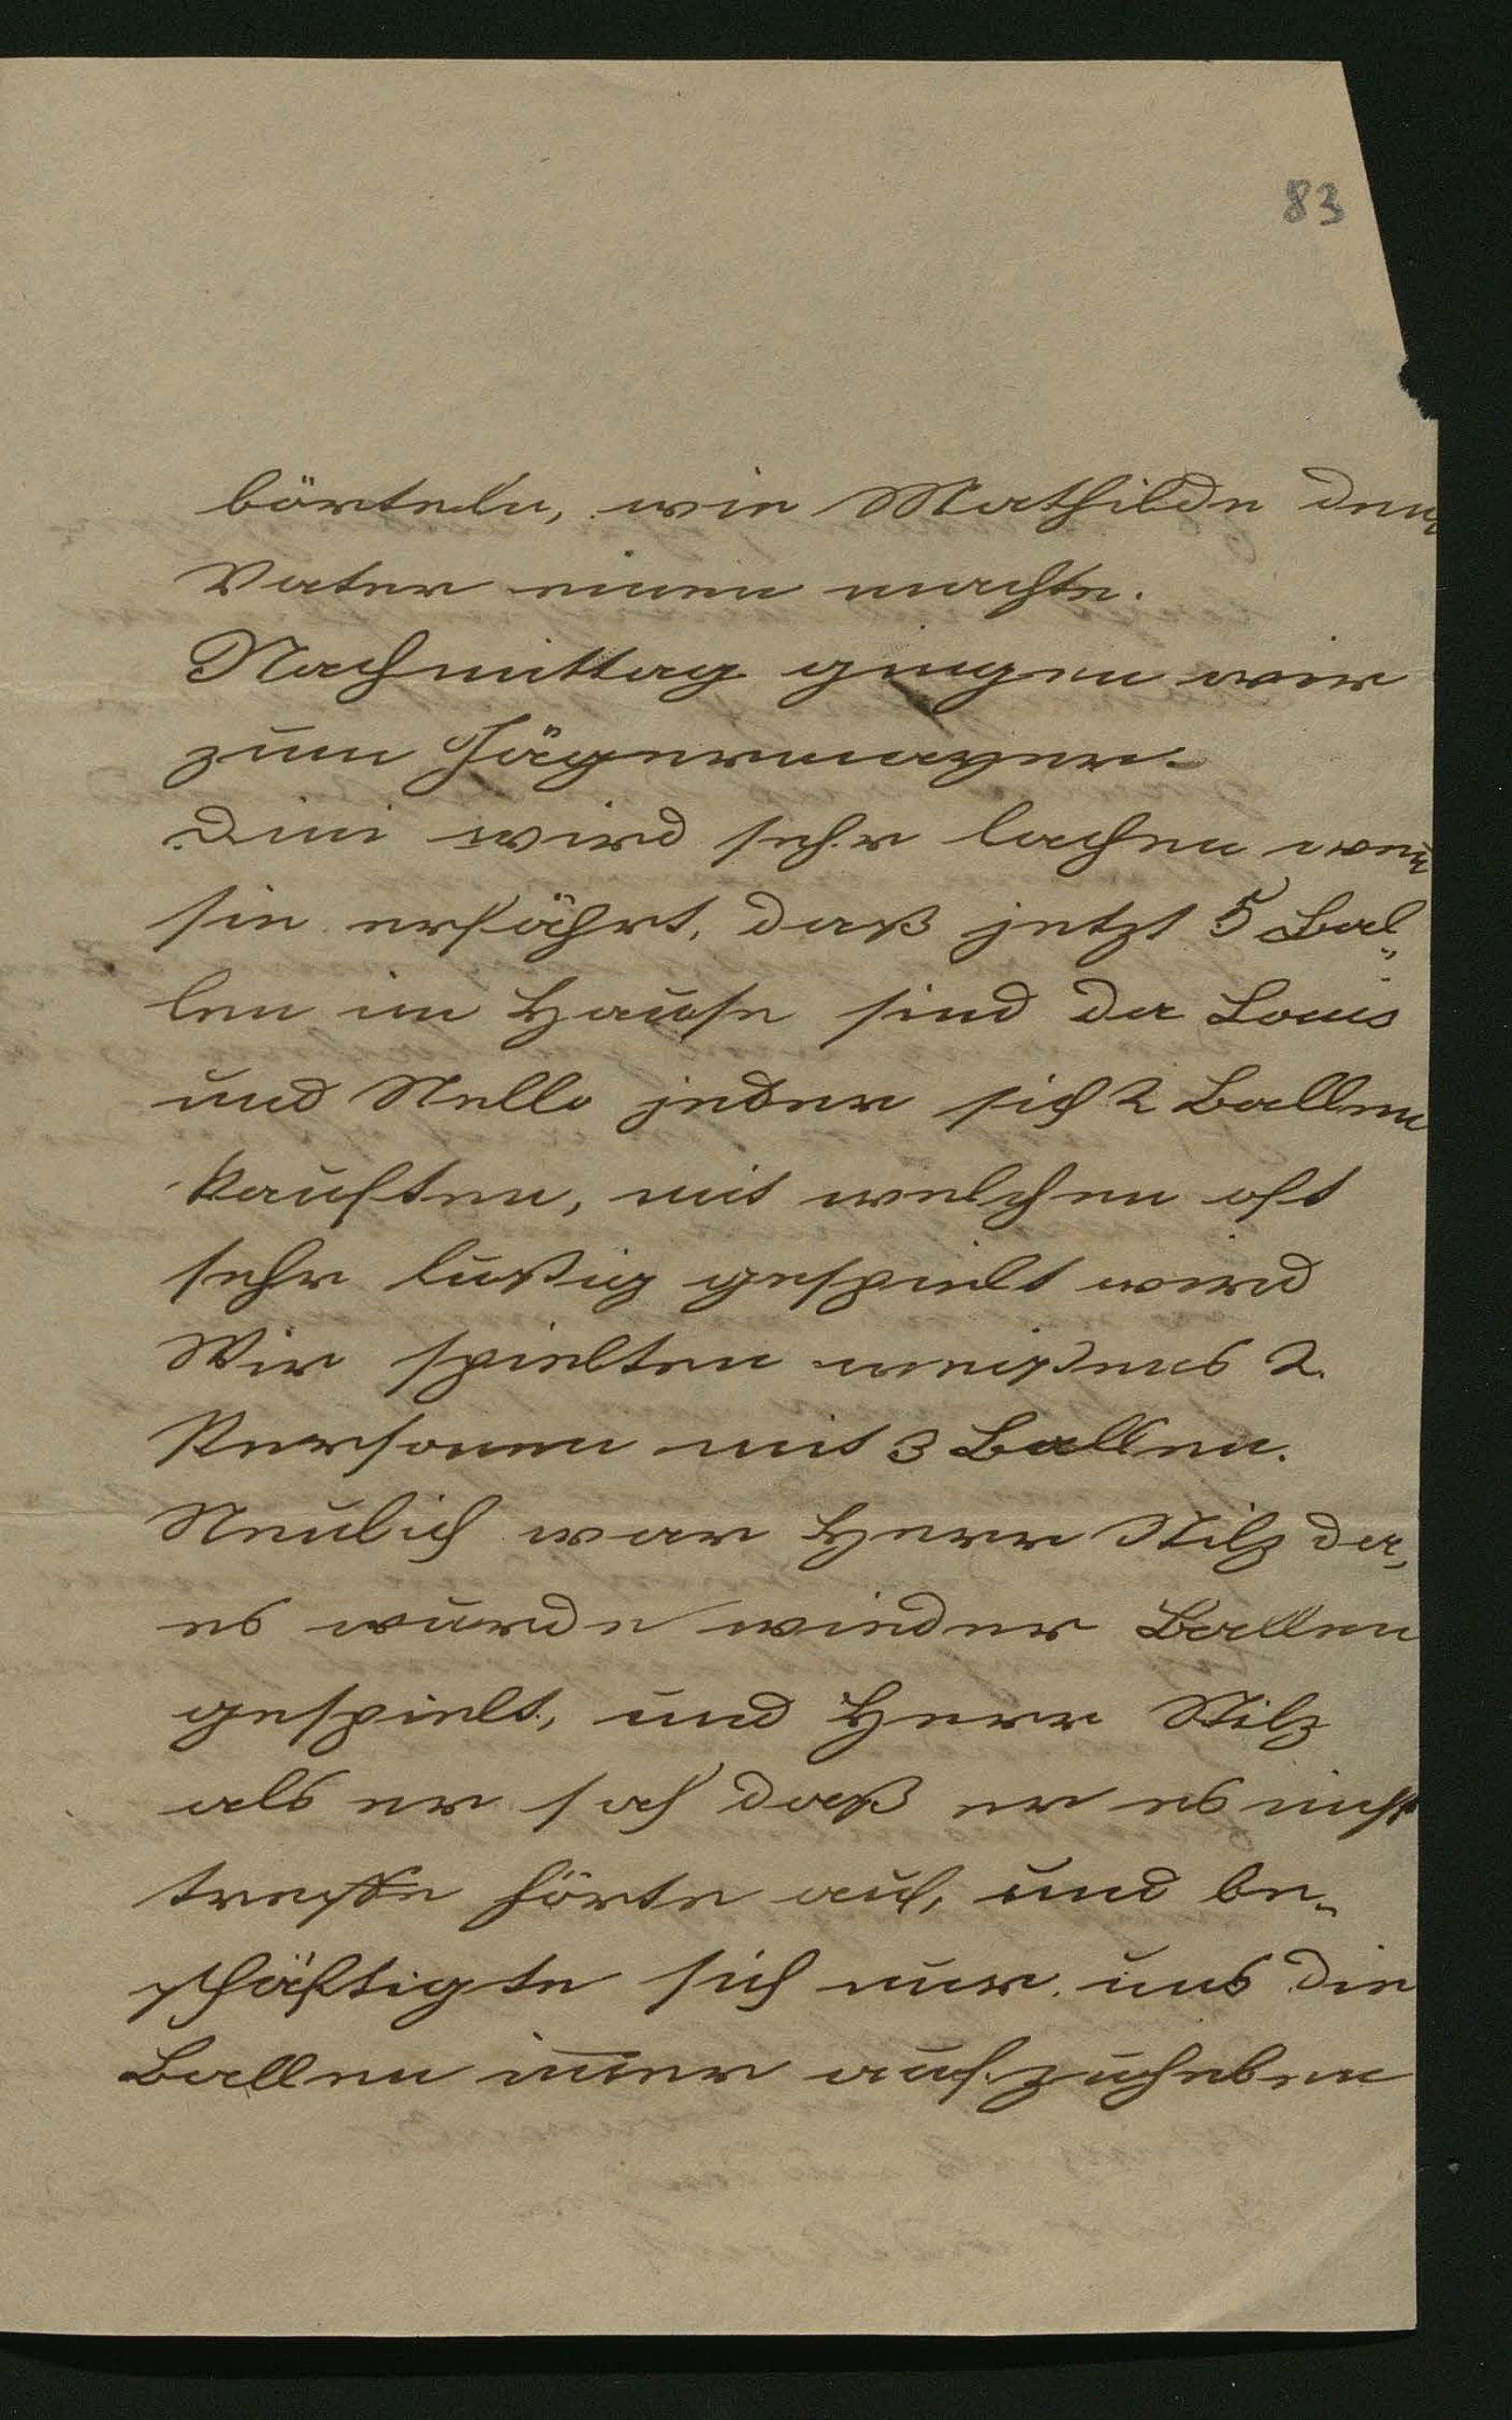 83
börteln, wie Mathilde dem
Vater einen machte.
Nachmittag gingen wir
zum Jägermayer.
Dini wird sehr lachen wen̅
sie erfährt, daß jetzt 5 Bal„
len im Hause sind da Louis
und Nello jeder sich 2 Ballen
kauften, mit welchen oft
sehr lustig gespielt wird
Wir spielten meistens 2.
Personen mit 3 Ballen.
Neulich war Herr Stilz da,
es wurde wieder Ballen
gespielt, und Herr Stilz
als er sah daß er es nicht
treffe hörte auf, und be„
schäftigte sich nur uns die
Ballen im̅er aufzuheben